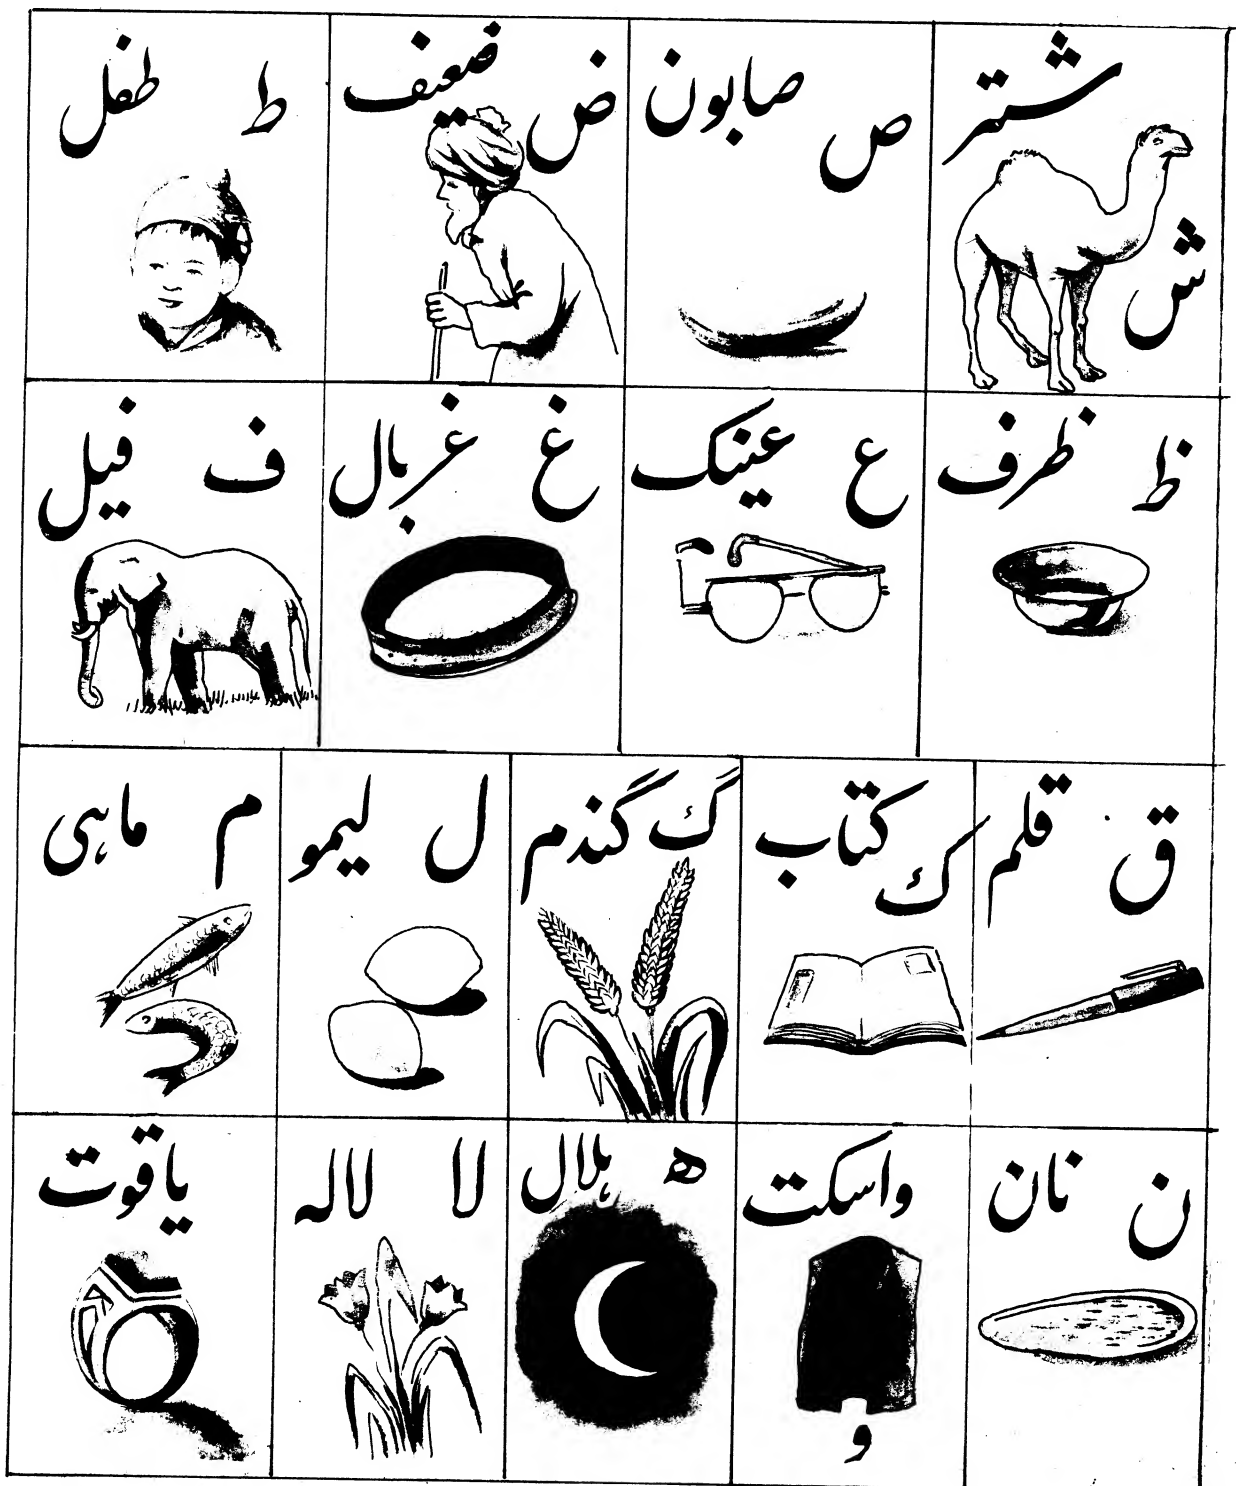 شتر
ش
ص صابون
ض ضعیف
ط طفل
ظ ظرف
ع عینک
غ غربال
ف فیل
ق قلم
ک کتاب
گ گندم
ل لیمو
م ماهی
ن نان
واسکت
و
ه هلال
لا لاله
یاقوت